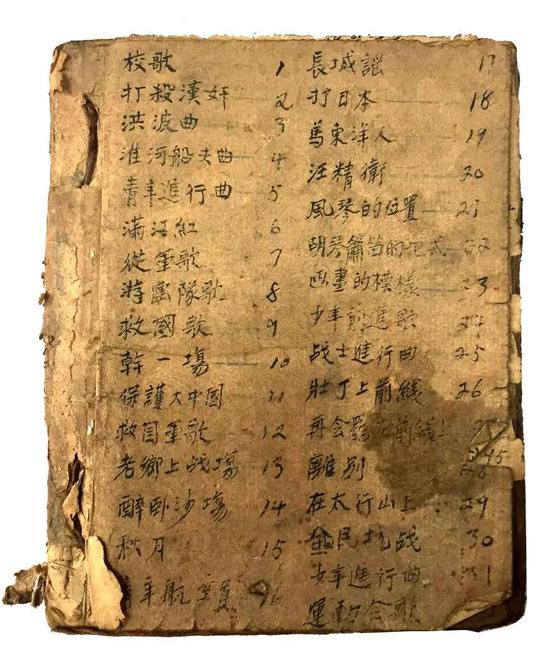 校歌 1
打殺漢奸 2
洪波曲 3
淮河船夫曲 4
青年進行曲 5
滿江紅 6
從軍歌 7
游擊隊歌 8
救國歌 9
幹一場 10
保護大中國 11
救国軍歌 12
老鄉上战塲 13
醉卧沙塲 14
秋月 15
青年航空員
長城謡 17
打日本 18
罵東洋人 19
汪精衛 20
風琴的位置 21
胡琴簫笛的 22
的模樣 23
少年前進歌 24
战士進行曲 25
壯丁上前线 26
再会 在前线上
離別 28
在太行山上 29
全民抗战 30
少年進行曲 31
運動会歌